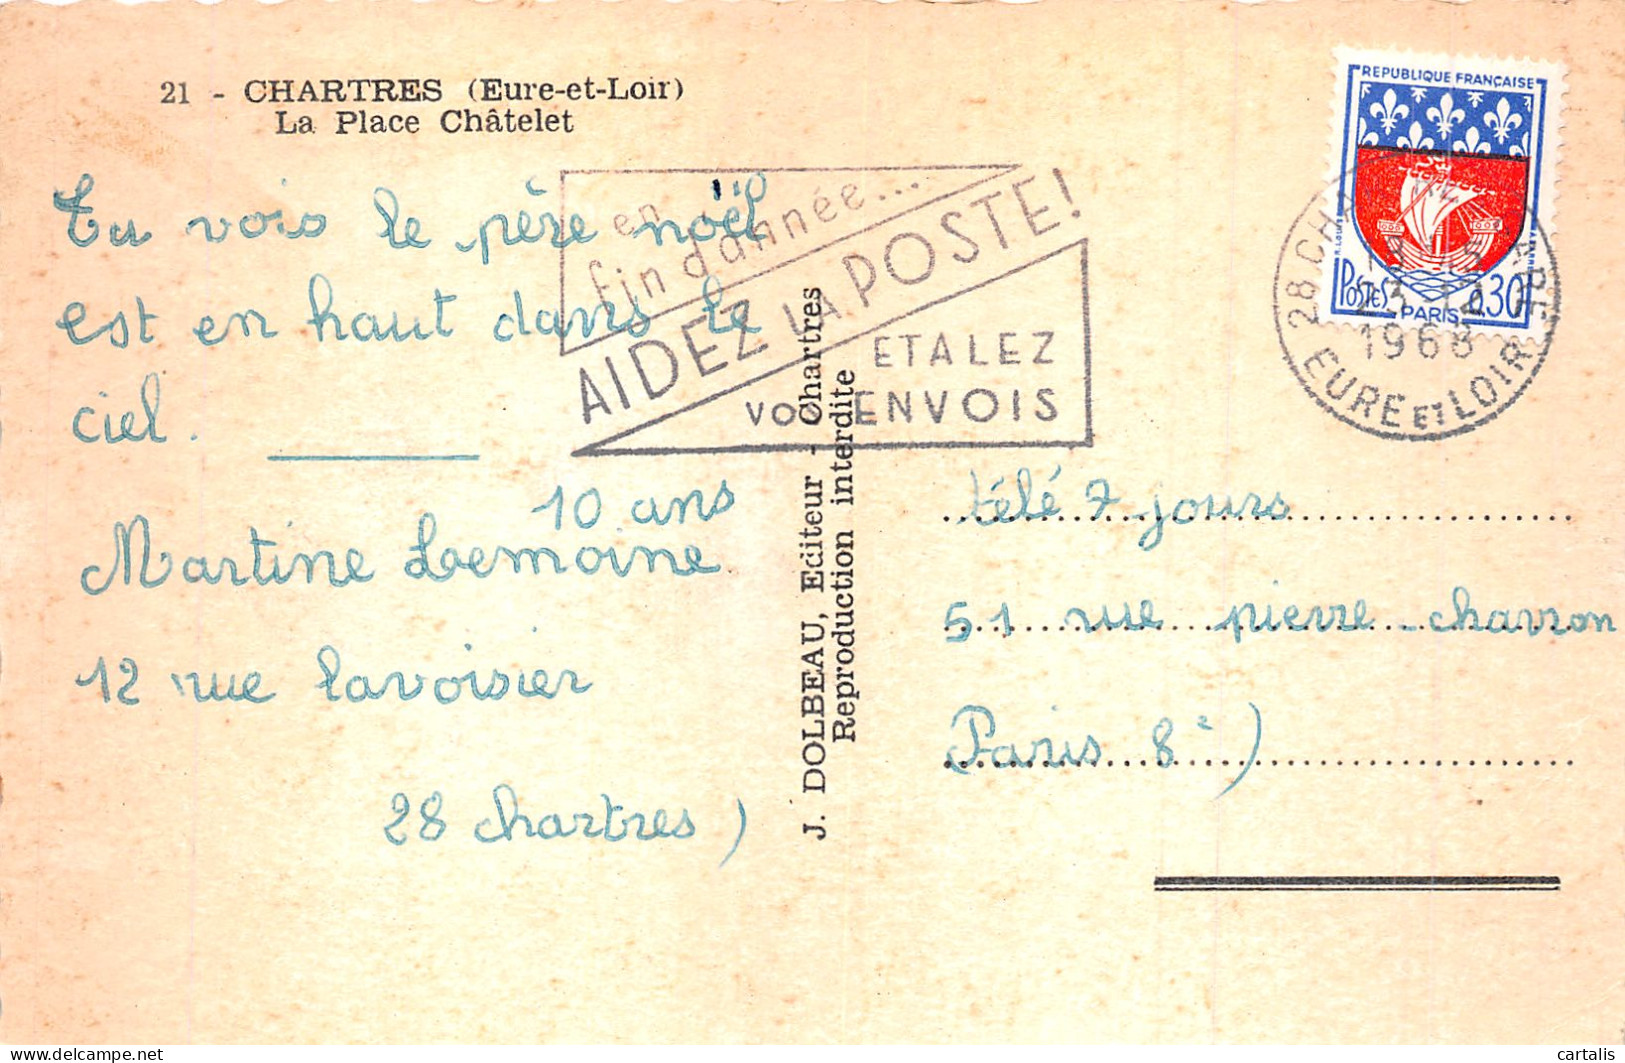 21 - CHARTRES (Eure-et-Loir)
La Place Châtelet
Tu vois le père noël
est en haut dans le
ciel.
10 ans
Martine Lemoine
12 rue lavoisier
28 chartres)
en
fin d'année...
AIDEZ LA POSTE!
ETALEZ
VOS ENVOIS
J. DOLBEAU, Editeur - Chartres
Reproduction interdite
REPUBLIQUE FRANÇAISE
POSTES
0,30F
PARIS
28 CHARTRES GARE
1966
EURE ET LOIR
télé 7 jours
51 rue pierre-charron
Paris 8e)
delcampe.net
cartalis